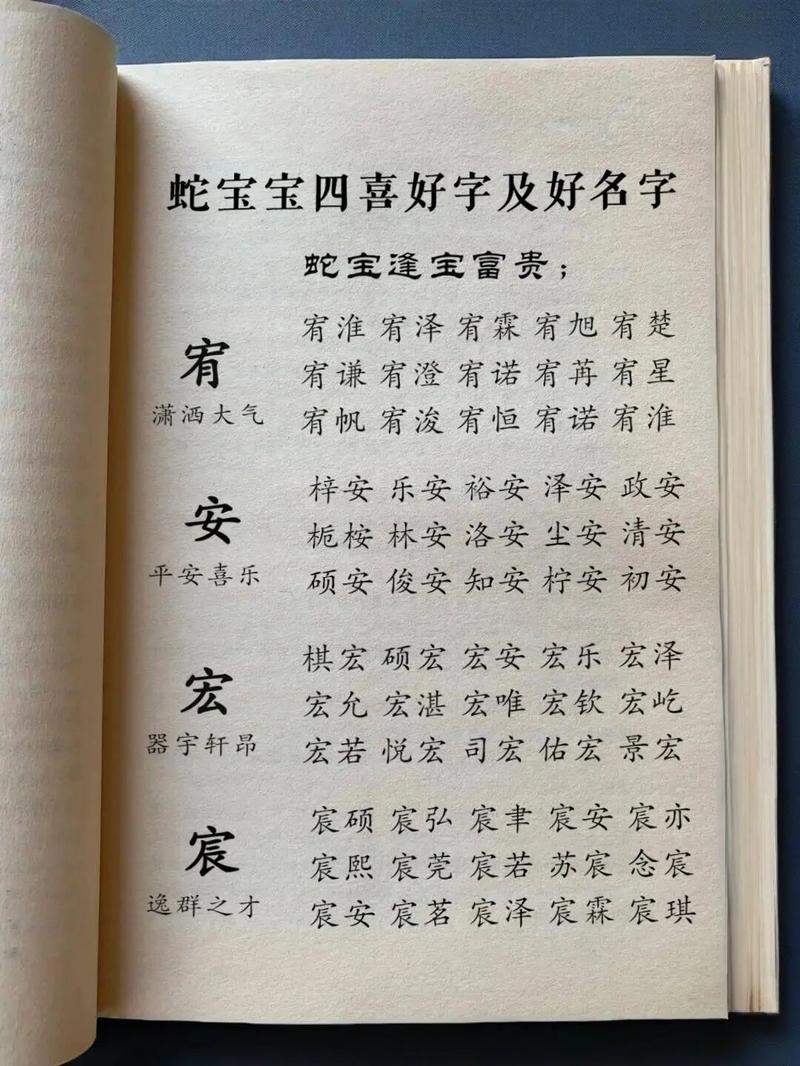 蛇宝宝四喜好字及好名字
蛇宝逢宝富贵；
宥
潇洒大气
宥淮 宥泽 宥霖 宥旭 宥楚
宥谦 宥澄 宥诺 宥苒 宥星
宥帆 宥浚 宥恒 宥诺 宥淮
安
平安喜乐
梓安 乐安 裕安 泽安 政安
栀桉 林安 洛安 尘安 清安
硕安 俊安 知安 柠安 初安
宏
器宇轩昂
棋宏 硕宏 宏安 宏乐 宏泽
宏允 宏湛 宏唯 宏钦 宏屹
宏若 悦宏 司宏 佑宏 景宏
宸
逸群之才
宸硕 宸弘 宸聿 宸安 宸亦
宸熙 宸莞 宸若 苏宸 念宸
宸安 宸茗 宸泽 宸霖 宸琪